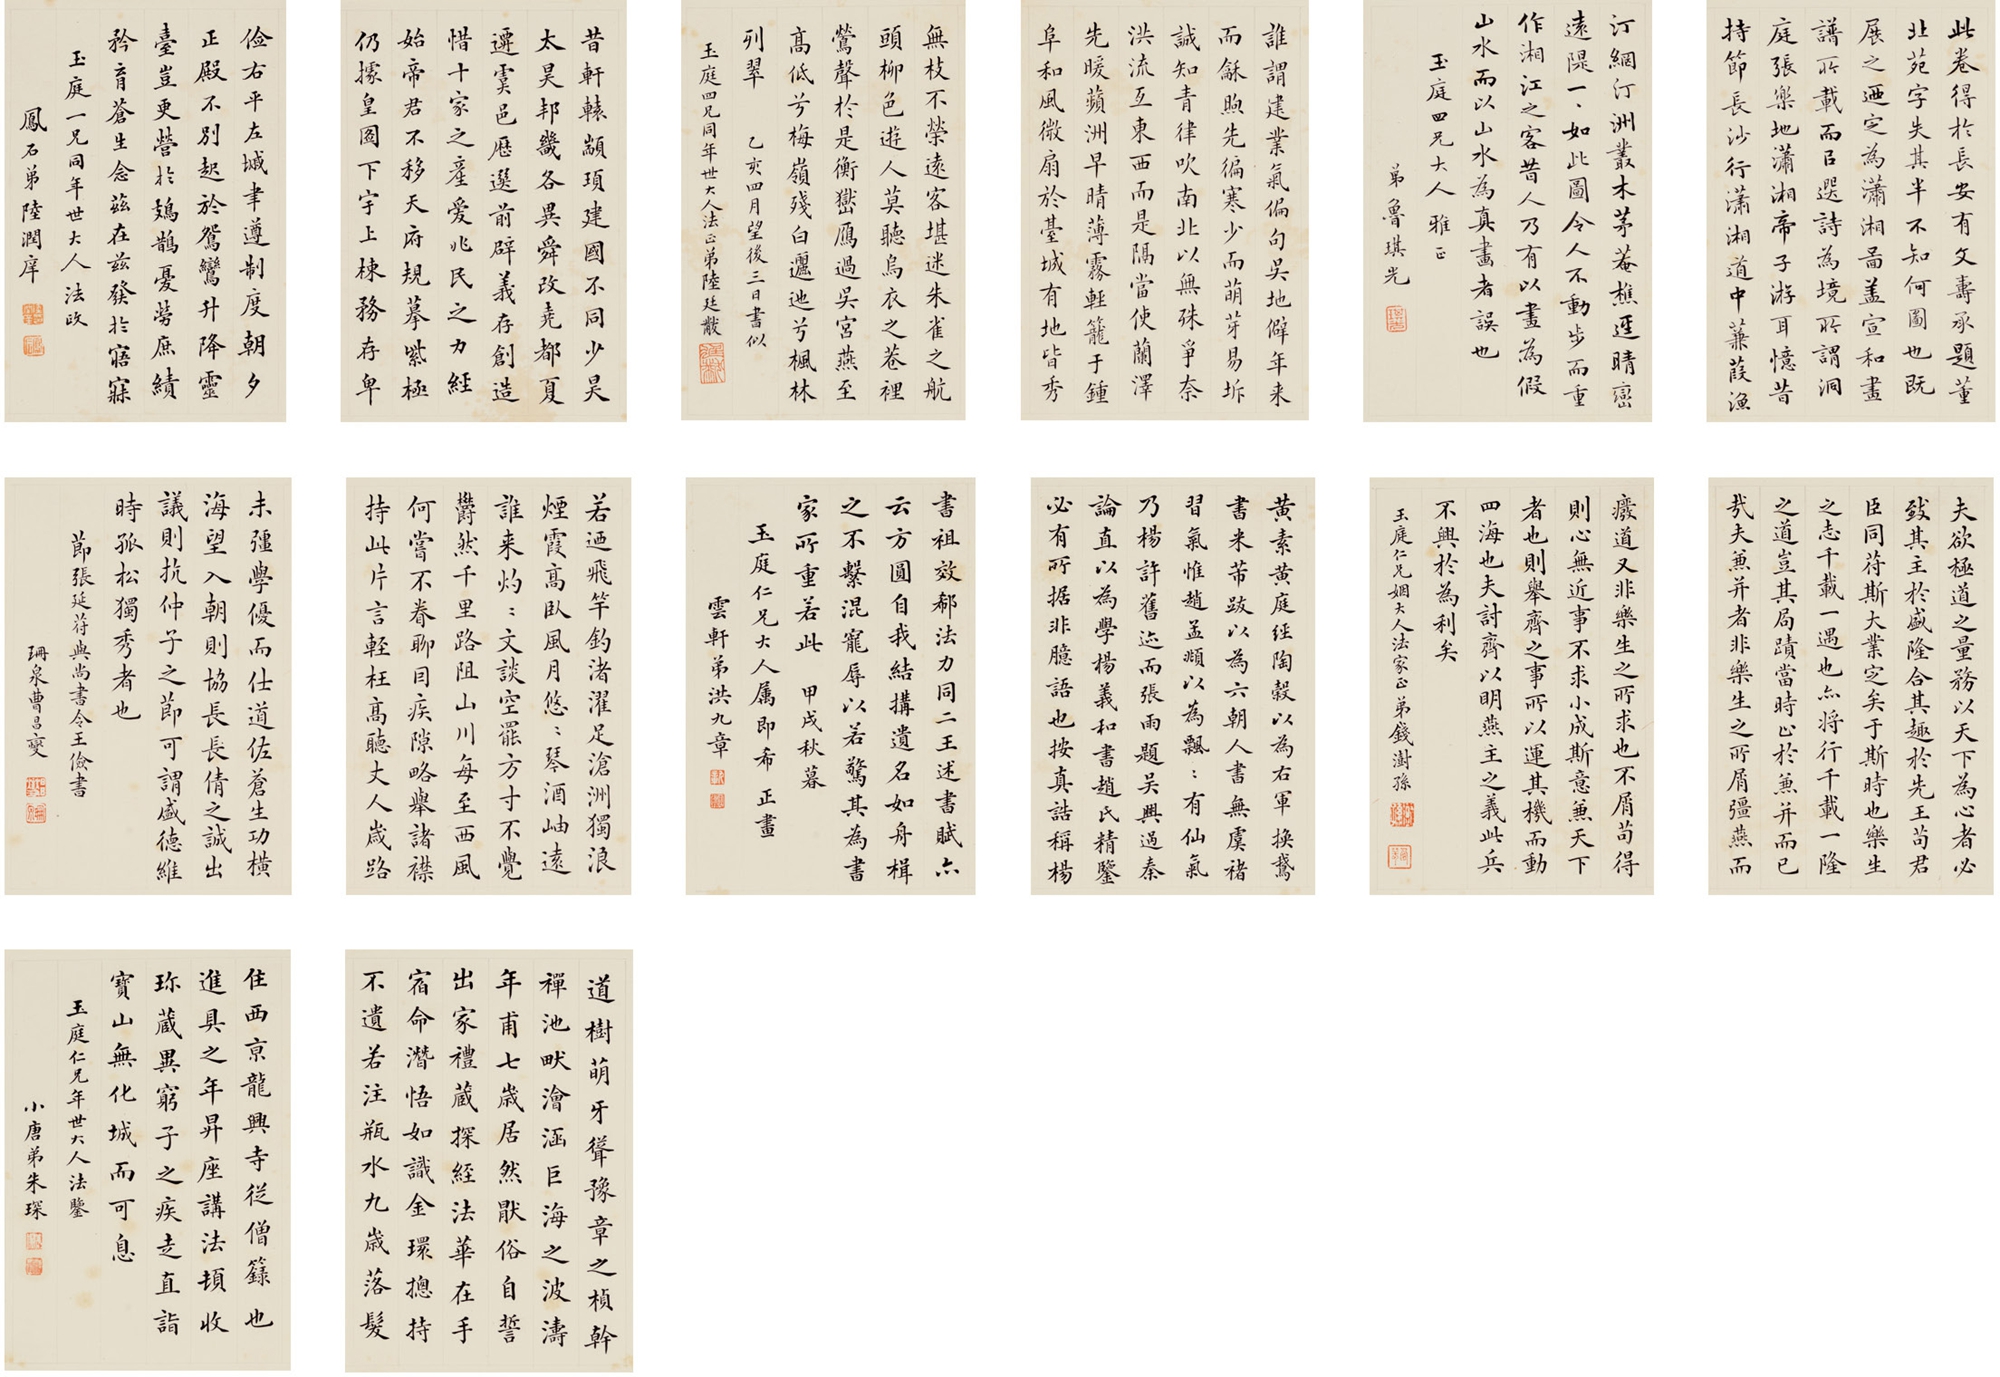 此卷得於長安有文壽承題董
北苑字失其半不知何圖也既
展之迺定為瀟湘啚盖宣和畫
譜所載而㠯選詩為境所謂洞
庭張樂地瀟湘帝子游耳憶昔
持節長沙行瀟湘道中蒹葭漁
汀網汀洲叢木茅菴樵逕晴巒
遠隄一、如此圖令人不動步而重
作湘江之客昔人乃有以畫為假
山水而以山水為真畫者誤也
玉庭四兄大人雅正
弟魯琪光
誰謂建業氣偏句吳地僻年来
而龢煦先徧寒少而萌芽易坼
誠知青律吹南北以無殊爭奈
洪流亙東西而是隔當使蘭澤
先暖蘋洲早晴薄霧輕籠于鍾
阜和風微扇於臺城有地皆秀
無枝不榮遠客堪迷朱雀之航
頭柳色遊人莫聽烏衣之巷裡
鶯聲於是衡嶽鴈過吳宮燕至
高低兮梅嶺殘白邐迤兮楓林
列翠 乙亥四月望後三日書似
玉庭四兄同年世大人法正弟陸廷黻
昔軒轅顓頊建國不同少昊
太昊邦畿各異舜改堯都夏
遷虞邑厯選前辟義存創造
惜十家之產愛兆民之力經
始帝君不移天府規摹紫極
仍據皇圖下宇上棟務存卑
儉右平左墄聿遵制度朝夕
正殿不別起於鴛鸞升降靈
臺豈更營於鳷鵲憂勞庶績
矜育蒼生念茲在茲發於寤寐
玉庭一兄同年世大人法政
鳳石弟陸潤庠
夫欲極道之量務以天下為心者必
致其主於盛隆合其趣於先王苟君
臣同苻斯大業定矣于斯時也樂生
之志千載一遇也亦將行千載一隆
之道豈其局蹟當時止於兼并而已
哉夫兼并者非樂生之所屑彊燕而
癈道又非樂生之所求也不屑苟得
則心無近事不求小成斯意兼天下
者也則舉齊之事所以運其機而動
四海也夫討齊以明燕主之義此兵
不興於為利矣
玉庭仁兄姻大人法家正弟錢澍孫
黃素黃庭經陶穀以為右軍換鵞
書米芾跋以為六朝人書無虞褚
習氣惟趙孟頫以為飄ミ有仙氣
乃楊許舊迹而張雨題吳興過秦
論直以為學楊義和書趙氏精鑒
必有所据非臆語也按真誥稱楊
書祖效郗法力同二王述書賦亦
云方圓自我結搆遺名如舟楫
之不繫混寵辱以若驚其為書
家所重若此 甲戌秋暮
玉庭仁兄大人属即希正畫
雲軒弟洪九章
若迺飛竿釣渚濯足滄洲獨浪
煙霞高臥風月悠ミ琴酒岫遠
誰来灼ミ文談空罷方寸不覺
欝然千里路阻山川每至西風
何嘗不眷聊因疾隙略舉諸襟
持此片言輕枉高聽丈人歲路
未彊學優而仕道佐蒼生功橫
海望入朝則協長長倩之誠出
議則抗仲子之節可謂盛德維
時孤松獨秀者也
節張延苻與尚書令王儉書
珊泉曹昌燮
道樹萌牙聳豫章之楨幹
禪池畎澮涵巨海之波濤
年甫七歲居然猒俗自誓
出家禮藏探經法華在手
宿命潛悟如識金環摠持
不遺若注瓶水九歲落髮
住西京龍興寺從僧籙也
進具之年昇座講法頓收
珎藏異窮子之疾走直詣
寶山無化城而可息
玉庭仁兄年世大人法鑒
小唐弟朱琛